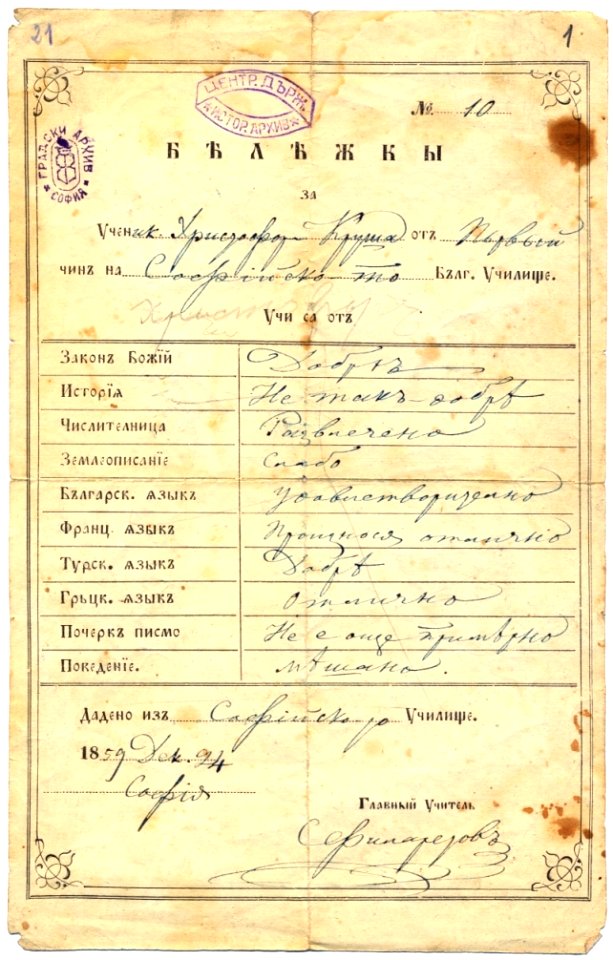 21
1
ЦЕНТР. ДЪРЖ.
ИСТОР. АРХИВ
ГРАДСКИ АРХИВ
СОФИЯ
№. 10
БѢЛѢЖКЫ
ЗА
Ученик Христофор Круша отъ Пьрвый
чинъ на Софійско-то Бълг. Училище.
Учи са отъ
Законъ Божій Добрѣ
Исторіѧ Не такъ добрѣ
Числителница Развлечено
Землеописаніе Слабо
Български. ѧзыкъ Удовлетворително
Франц. ѧзыкъ Произнося отлично
Турск. ѧзыкъ Добрѣ
Гръцк. ѧзыкъ Отлично
Почеркъ писмо Не е още примѣрно
Поведеніе. мѣшано.
Дадено изъ Софійско то Училище.
1859 Дек. 24
Софія
Главный Учитель
С Филаретовъ